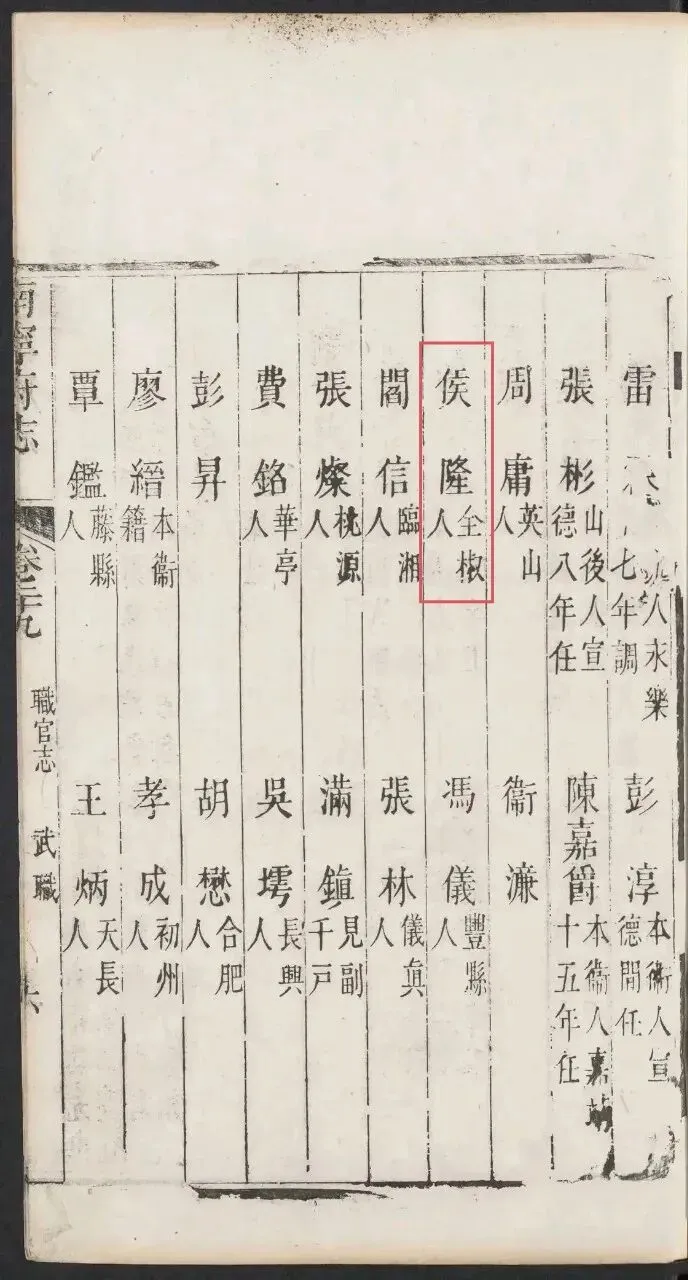 雷
人永樂
七年調
彭淳
本衞人宣
德間任
張彬
山後人宣
德八年任
陳嘉爵
本衞人嘉靖
十五年任
周庸
英山
人
衞濂
侯隆
全椒
人
馮儀
豐縣
人
閻信
臨湘
人
張林
儀眞
人
張燦
桃源
人
滿鎮
見副
千戸
費銘
華亭
人
吳塄
長興
人
彭昇
胡懋
合肥
人
廖縉
本衞
籍
孝成
初州
人
覃鑑
藤縣
人
王炳
天長
人
南寧府志
卷二十九
職官志
武職
六